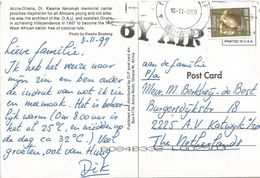 Accra-Ghana, Dr. Kwame Nkrumah memorial center
provides inspiration for all Africans young and old alike,
as the architect of the O.A.U. and assisted Ghana
in achieving independence in 1957 to become the first
West African nation free of colonial rule.
Photo by Kweku Boateng
3-11-99
Lieve familie,
Ik heb het reuze naar
mijn zin en ben onder
de indruk van wat ik zie
en meemaak. Het is behoor-
lijk warm (om 8.00 uur is
het al 25°C, en midden op
de dag ca 32°C). Veel
groeten, ook van Huug
Dik
BY AIR
PRINTED IN U.S.A.
Post Card
aan de familie
p/a
Mevr. M. de Best
Burgersdijkstr 18
2225 A.V. Katwijk
The Netherlands